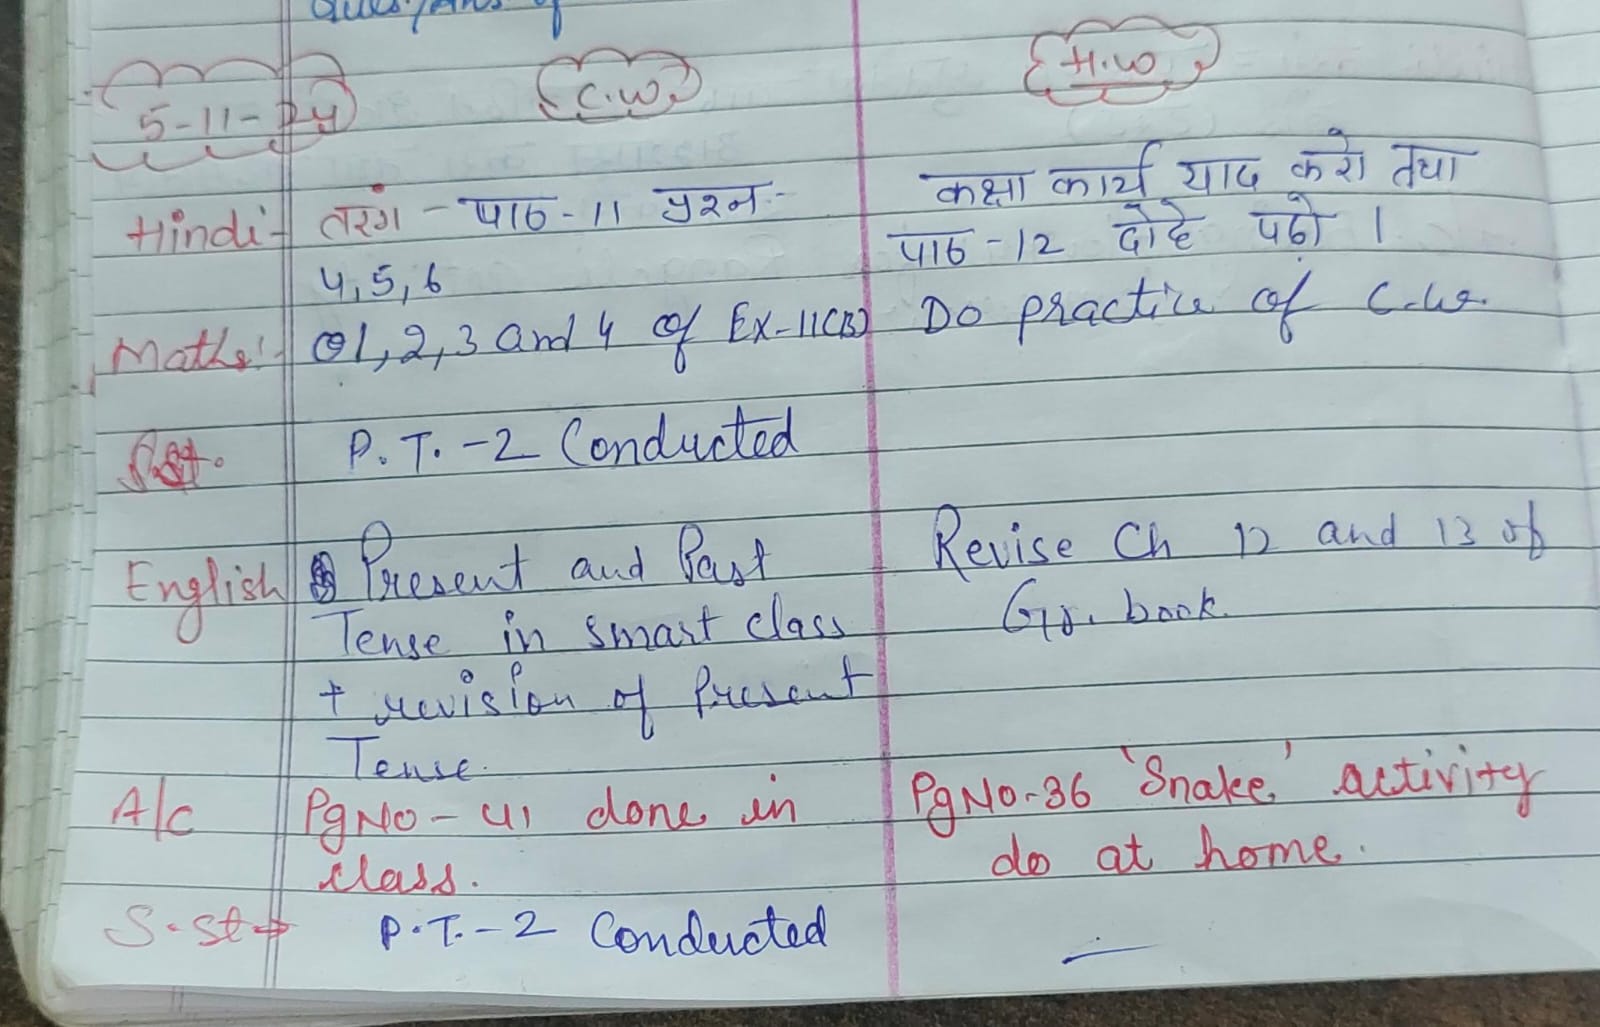 5-11-24 C.W. H.W
Hindi:- तरंग - पाठ-11 प्रश्न- कक्षा कार्य याद करो तथा
4,5,6 पाठ-12 दोहे पढ़ो ।
Maths:- Q1,2,3 and 4 of Ex-11(B) Do practice of C.w.
S.st. P.T.-2 Conducted
English Present and Past Revise Ch 12 and 13 of
Tense in smart class Gr. book.
+ revision of Present
Tense.
A/c PgNo-41 done in PgNo-36 'Snake' activity
class. do at home.
S.st→ P.T.-2 Conducted —